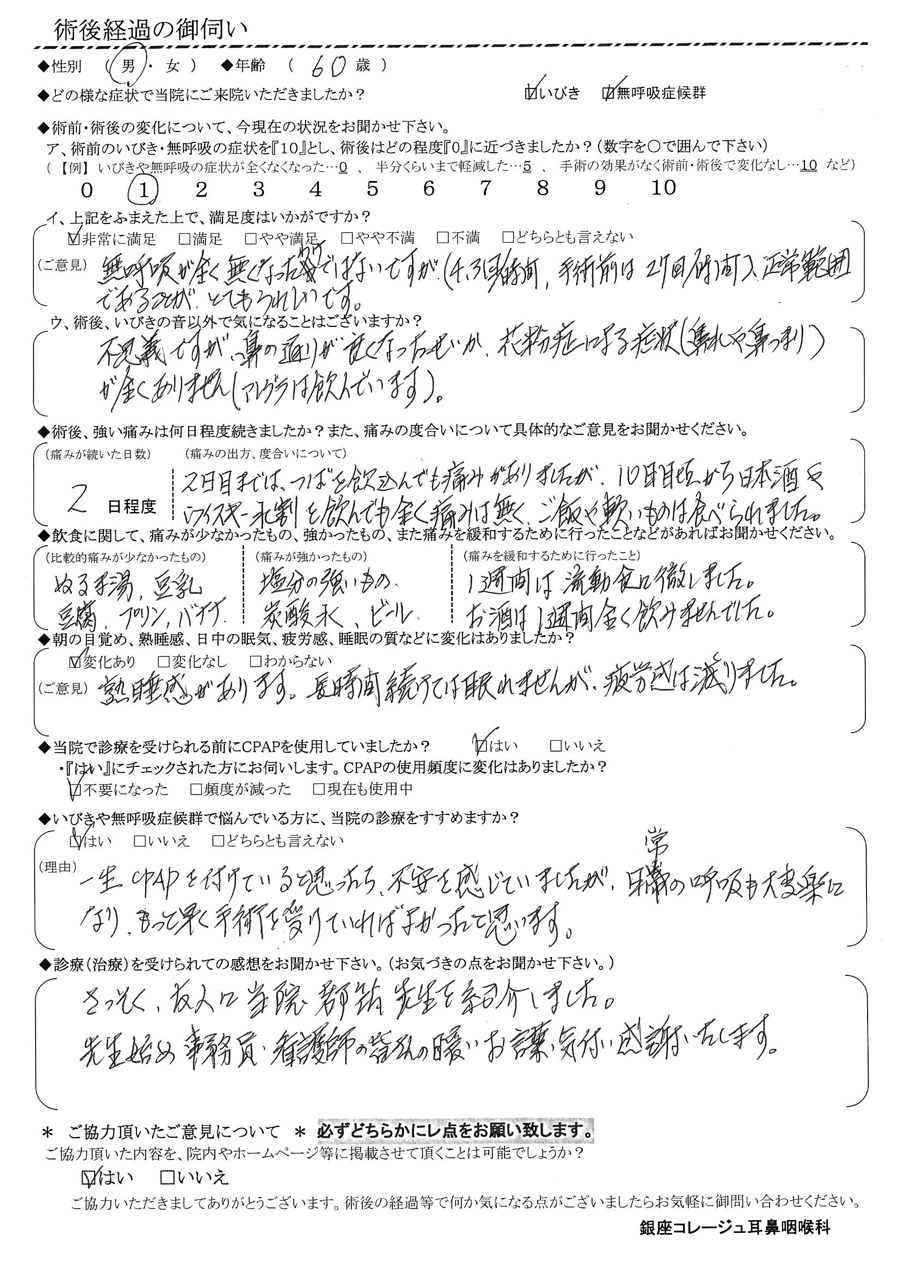 術後経過の御伺い
◆性別 ( 男 ・ 女 ) ◆年齢 ( 60 歳 )
◆どの様な症状で当院にご来院いただきましたか? ☑いびき ☑無呼吸症候群
◆術前・術後の変化について、今現在の状況をお聞かせ下さい。
ア、術前のいびき・無呼吸の症状を『10』とし、術後はどの程度『0』に近づきましたか?(数字を○で囲んで下さい)
(【例】いびきや無呼吸の症状が全くなくなった…0 、 半分くらいまで軽減した…5 、 手術の効果がなく術前・術後で変化なし…10 など)
0 1 2 3 4 5 6 7 8 9 10
イ、上記をふまえた上で、満足度はいかがですか?
☑非常に満足 □満足 □やや満足 □やや不満 □不満 □どちらとも言えない
(ご意見) 無呼吸が全く無くなったわけではないですが(4.3回/時間,手術前は27回/時間)、正常範囲
であることが、とてもうれしいです。
ウ、術後、いびきの音以外で気になることはございますか?
不思議ですが、鼻の通りが良くなったせいか、花粉症による症状(鼻水や鼻づまり)
が全くありません(アレグラは飲んでいます)。
◆術後、強い痛みは何日程度続きましたか?また、痛みの度合いについて具体的なご意見をお聞かせください。
(痛みが続いた日数) (痛みの出方、度合いについて)
2日目までは、つばを飲込んでも痛みがありましたが、10日目頃から日本酒や
2 日程度 ウイスキー水割を飲んでも全く痛みは無く、ご飯や軟いものは食べられました。
◆飲食に関して、痛みが少なかったもの、強かったもの、また痛みを緩和するために行ったことなどがあればお聞かせください。
(比較的痛みが少なかったもの) (痛みが強かったもの) (痛みを緩和するために行ったこと)
ぬるま湯,豆乳 塩分の強いもの、 1週間は流動食に徹しました。
豆腐,プリン,バナナ. 炭酸水、ビール お酒は1週間全く飲みませんでした。
◆朝の目覚め、熟睡感、日中の眠気、疲労感、睡眠の質などに変化はありましたか?
☑変化あり □変化なし □わからない
(ご意見) 熟睡感があります。長時間続けては眠れませんが、疲労感は減りました。
◆当院で診療を受けられる前にCPAPを使用していましたか? ☑はい □いいえ
・『はい』にチェックされた方にお伺いします。CPAPの使用頻度に変化はありましたか?
☑不要になった □頻度が減った □現在も使用中
◆いびきや無呼吸症候群で悩んでいる方に、当院の診療をすすめますか?
☑はい □いいえ □どちらとも言えない
(理由) 一生CPAPを付けていると思ったら、不安を感じていましたが、日常の呼吸も大変楽に
なり、もっと早く手術を受けていればよかったと思います。
◆診療(治療)を受けられての感想をお聞かせ下さい。(お気づきの点をお聞かせ下さい。)
さっそく、友人に当院・先生を紹介しました。
先生始め事務員・看護師の皆さんの暖いお言葉・気付い感謝いたします。
＊ ご協力頂いたご意見について ＊ 必ずどちらかにレ点をお願い致します。
ご協力頂いた内容を、院内やホームページ等に掲載させて頂くことは可能でしょうか?
☑はい □いいえ
ご協力いただきましてありがとうございます。術後の経過等で何か気になる点がございましたらお気軽に御問い合わせください。
銀座コレージュ耳鼻咽喉科